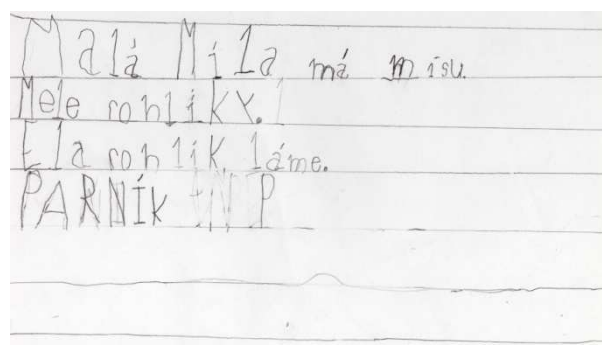 Malá Míla má mísu.
Mele rohlíky.
Ela rohlík láme.
PARNÍK P